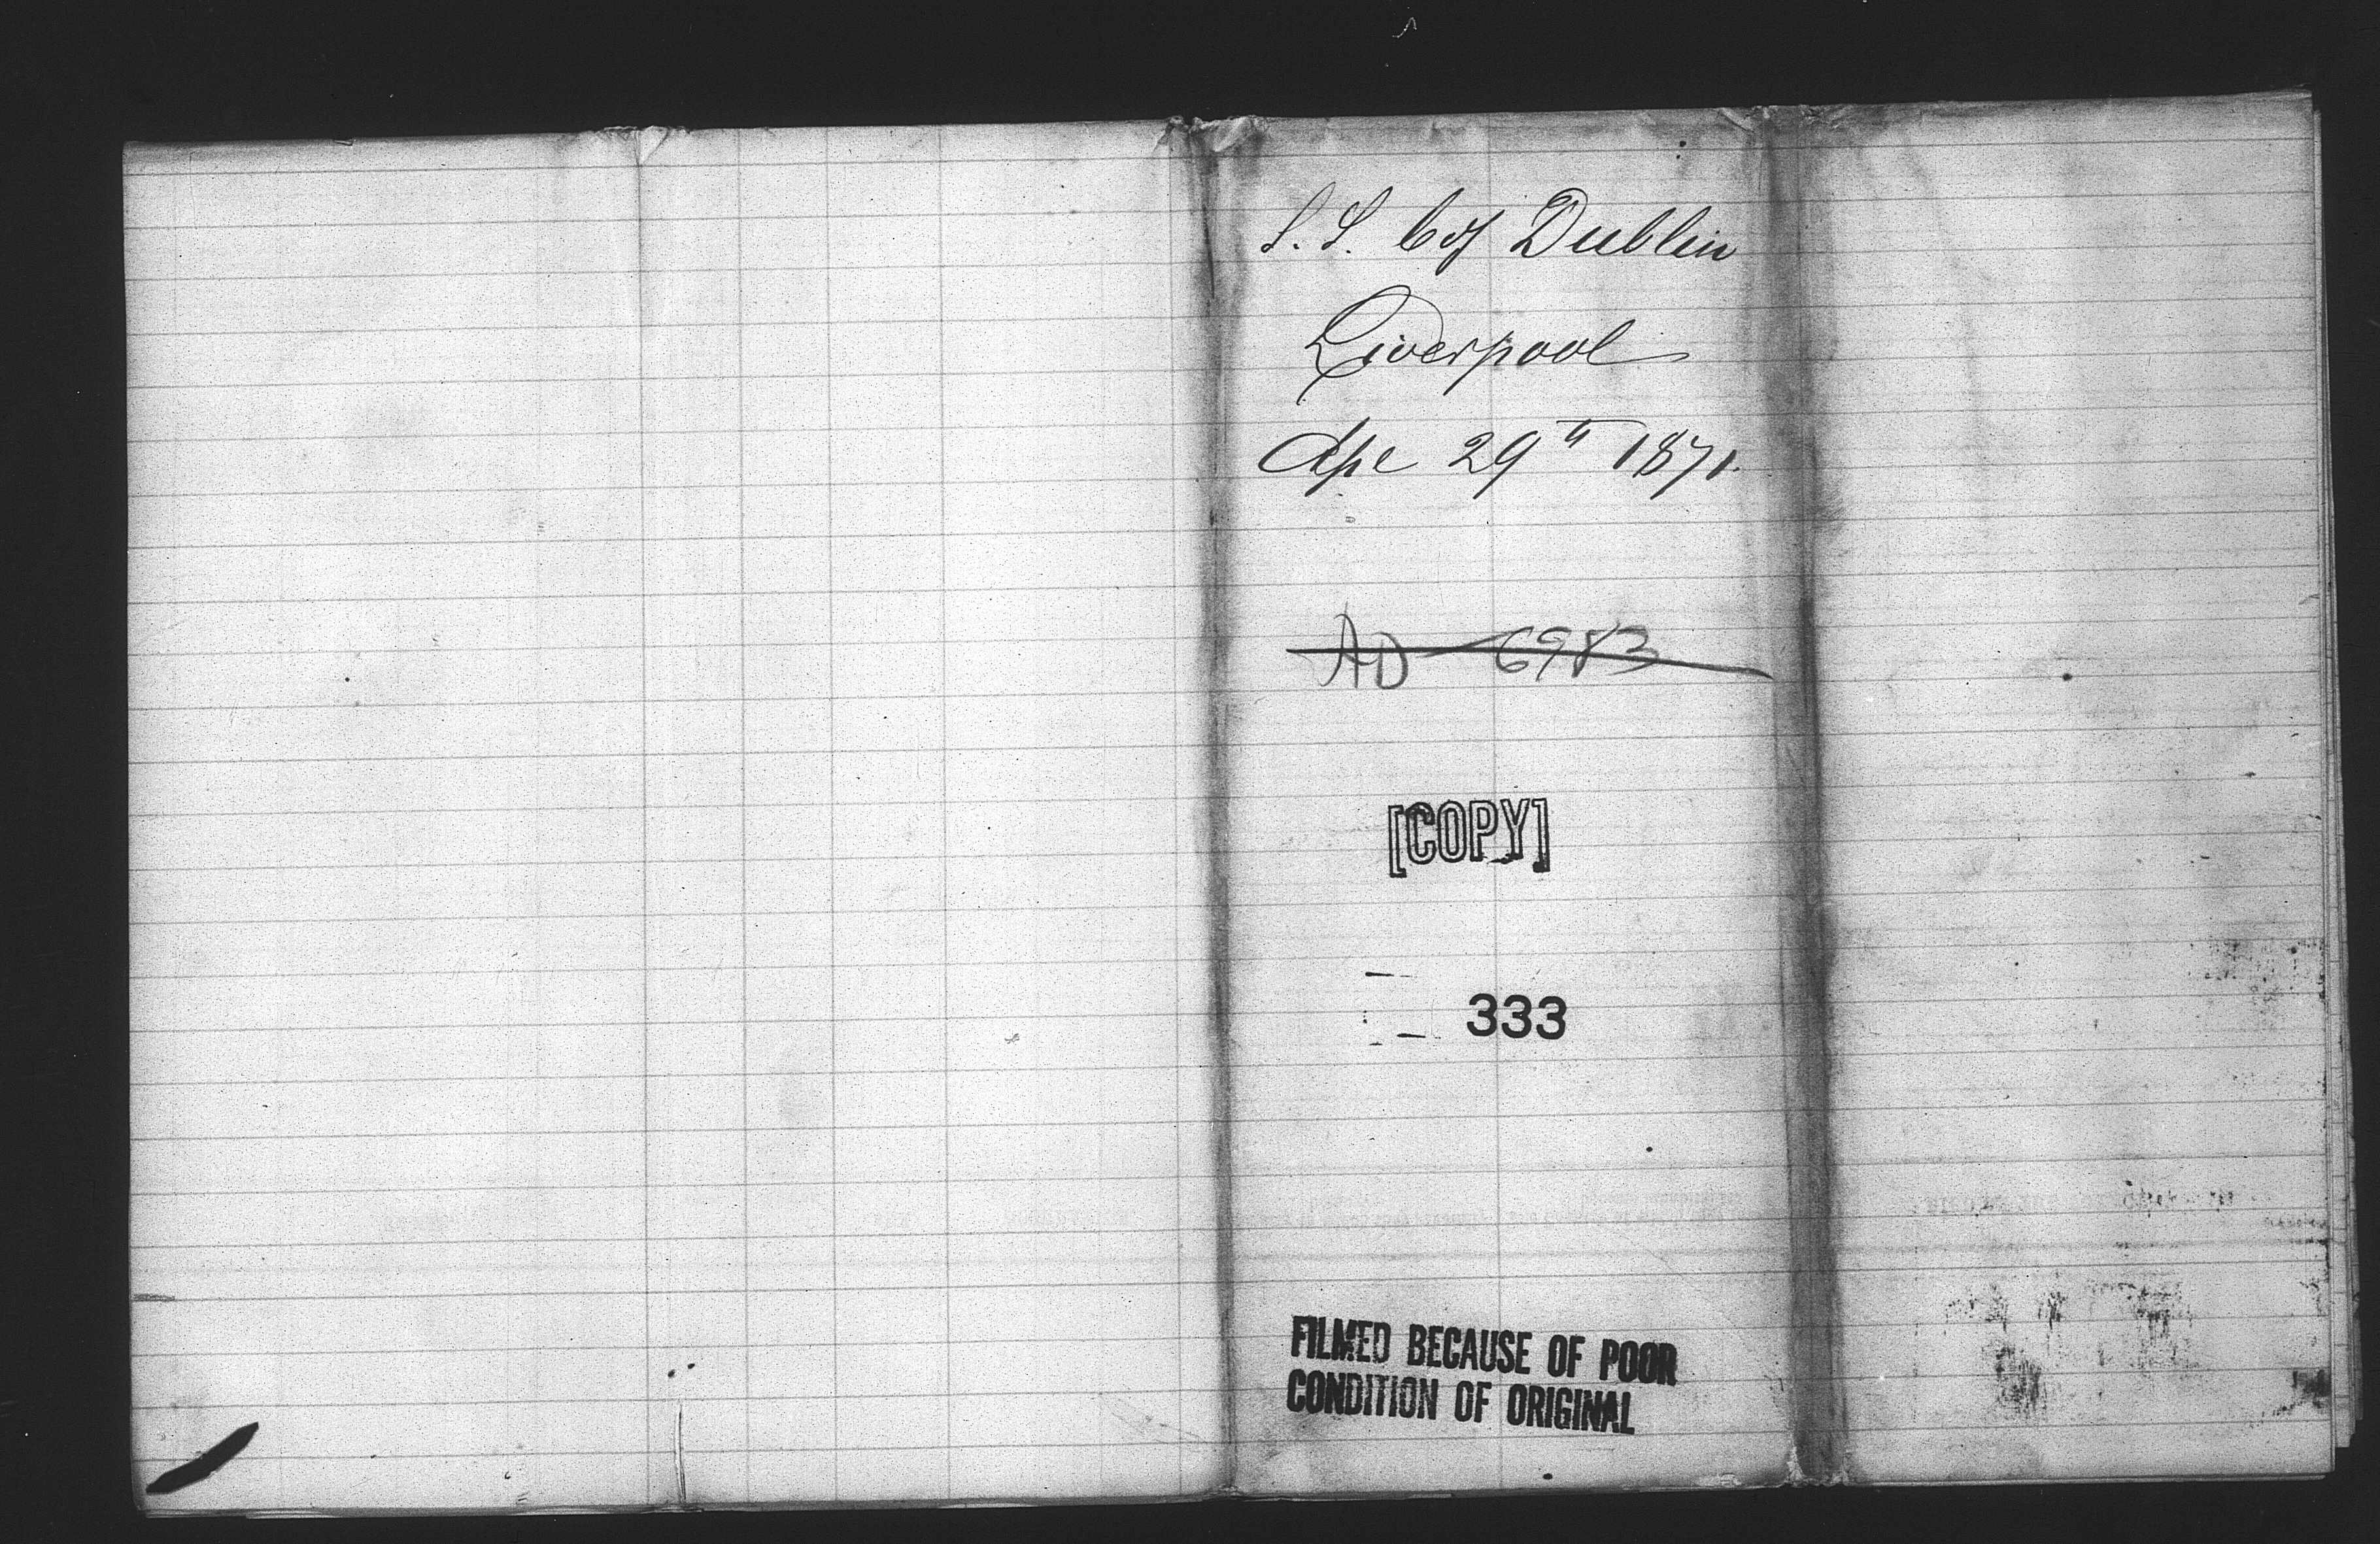 S.S. C of Dublin
Liverpool
Apl 29th 1871.
AD 6983
[COPY]
333
FILMED BECAUSE OF POOR
CONDITION OF ORIGINAL